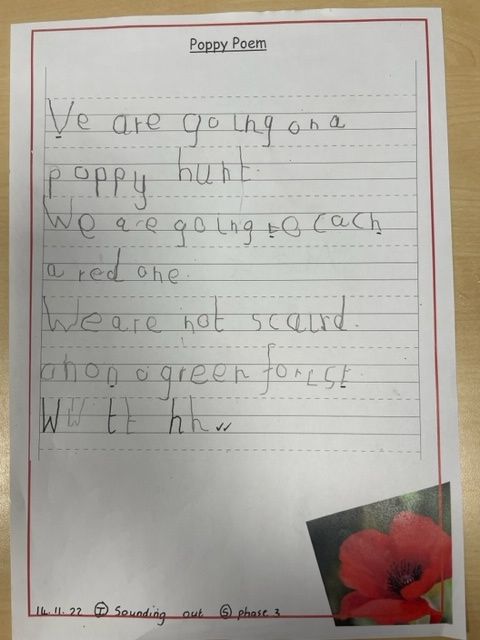 Poppy Poem
Ve are going on a
poppy hunt.
We are going to cach
a red one.
We are not scaurd.
ohon o green forist.
W W t t h h
14.11.22 T Sounding out S phase 3